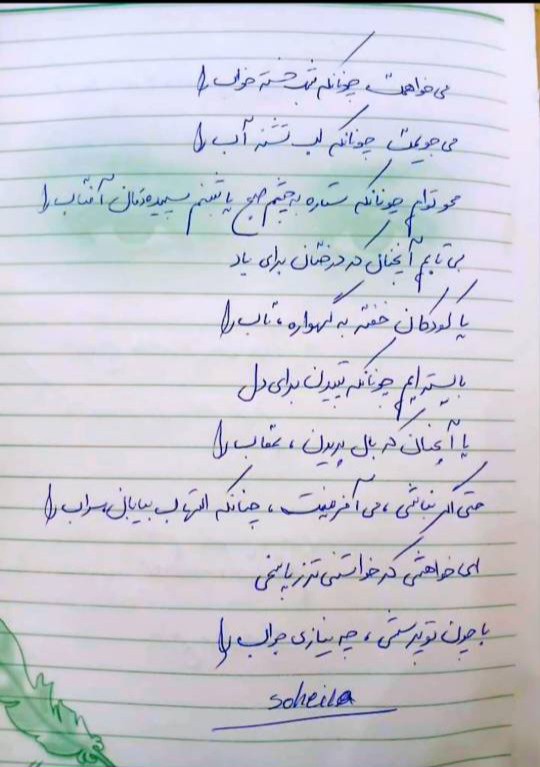 می‌خواهمت چونانکه شب خسته خواب را
می‌جویمت چونانکه لب تشنه آب را
محو توام چونانکه ستاره به چشم صبح یا شبنم سپیده‌دمان آفتاب را
بی‌تابم آنچنان که درختان برای باد
یا کودکان خفته به گهواره، تاب را
بایسته‌ایم چونانکه تپیدن برای دل
یا آنچنان که بال پریدن، عقاب را
حتی اگر نباشی، می‌آفرینمت، چنانکه التهاب بیابان، سراب را
ای خواهشی که خواستنی‌تر ز پاسخی
با چون تو پرسشی، چه نیازی جواب را
soheila